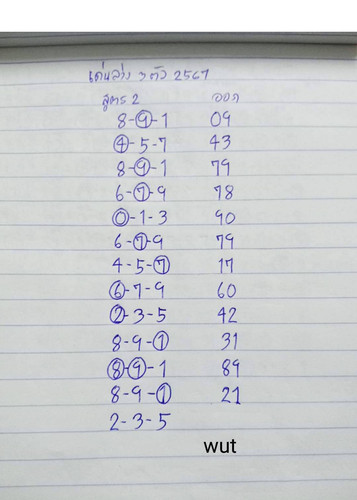 เด่นล่าง 3 ตัว 2567
สูตร 2 ออก
8-9-1 09
4-5-7 43
8-9-1 79
6-7-9 78
0-1-3 90
6-7-9 79
4-5-7 17
6-7-9 60
2-3-5 42
8-9-1 31
8-9-1 89
8-9-1 21
2-3-5
wut